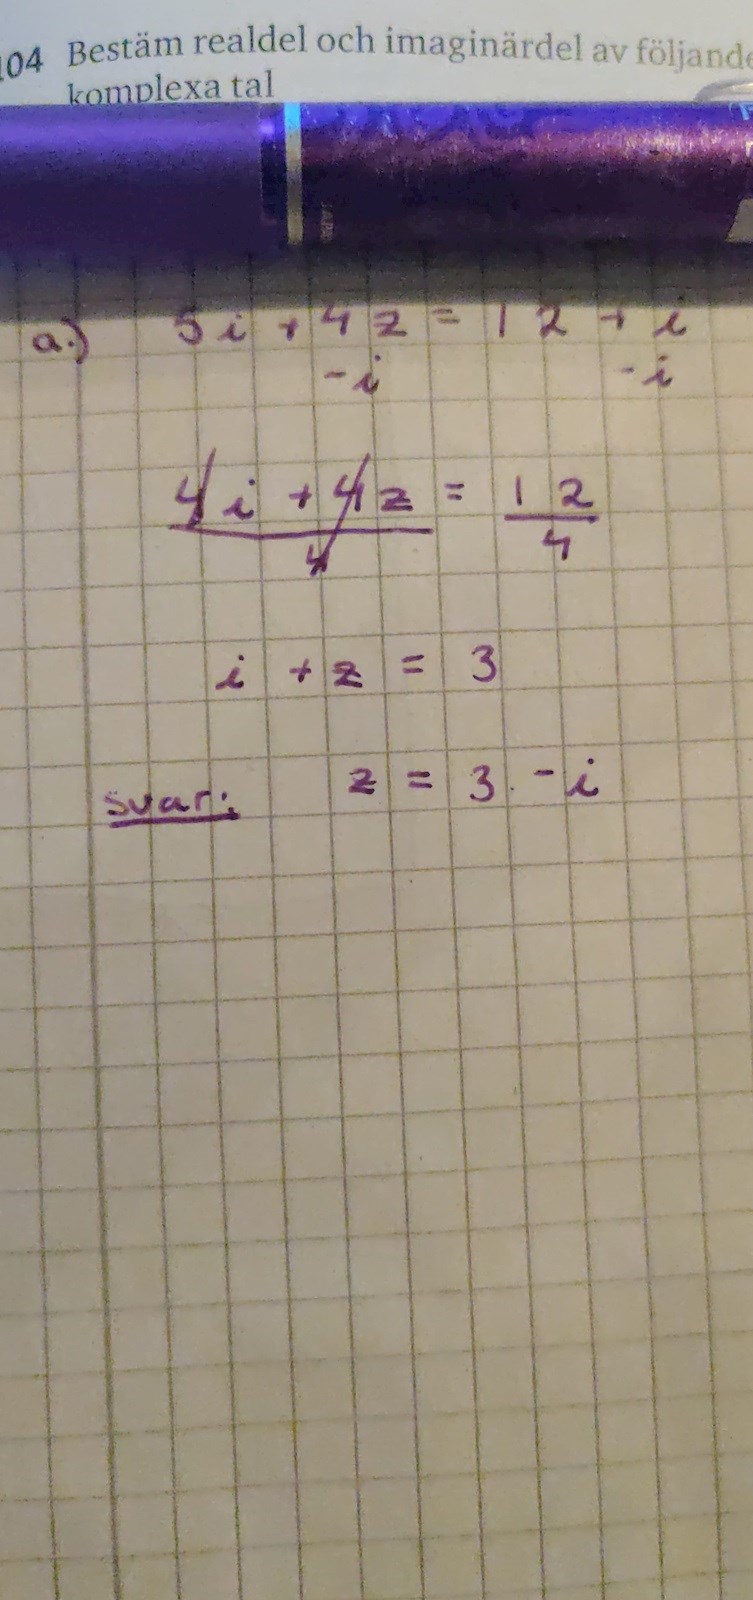 104 Bestäm realdel och imaginärdel av följande
komplexa tal
a.) 5i + 4z = 12 + i
-i -i
4i + 4z = 12
4 4
i + z = 3
svar: z = 3 - i